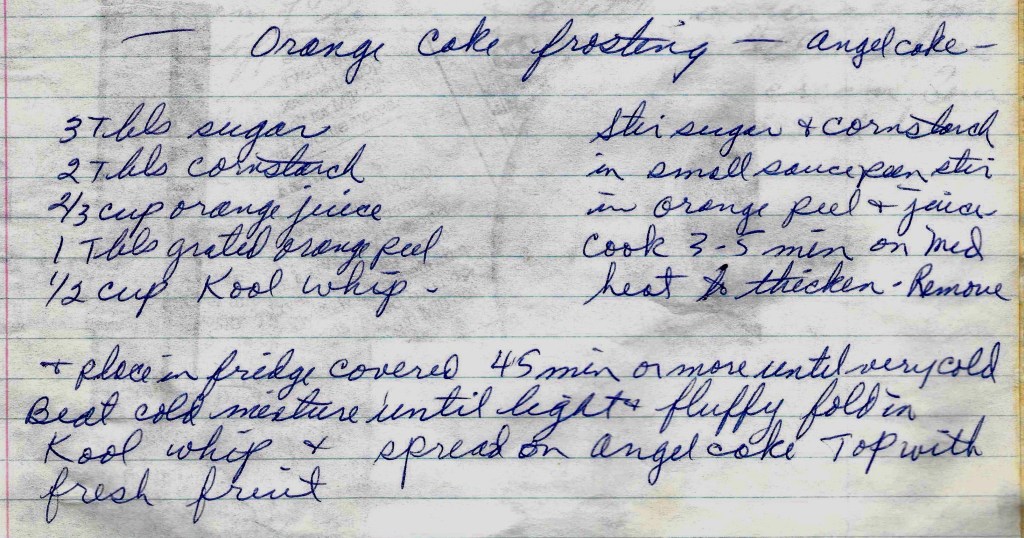 — Orange Cake frosting — angelcake —
3 Tbls sugar
2 Tbls cornstarch
2/3 cup orange juice
1 Tbls grated orange peel
1/2 cup Kool whip -
Stir sugar & cornstarch
in small saucepan stir
in orange peel & juice
Cook 3-5 min on Med
heat to thicken - Remove
& place in fridge covered 45 min or more until very cold
Beat cold mixture until light & fluffy fold in
Kool whip & spread on angel cake Top with
fresh fruit